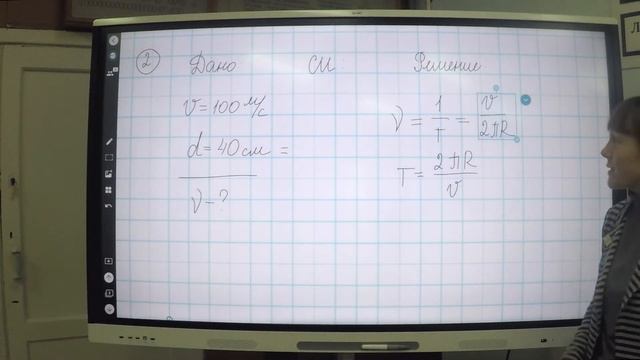 2 Дано СИ Решение
υ = 100 м/с
d = 40 см =
ν - ?
ν = 1/T = υ/2πR
T = 2πR/υ